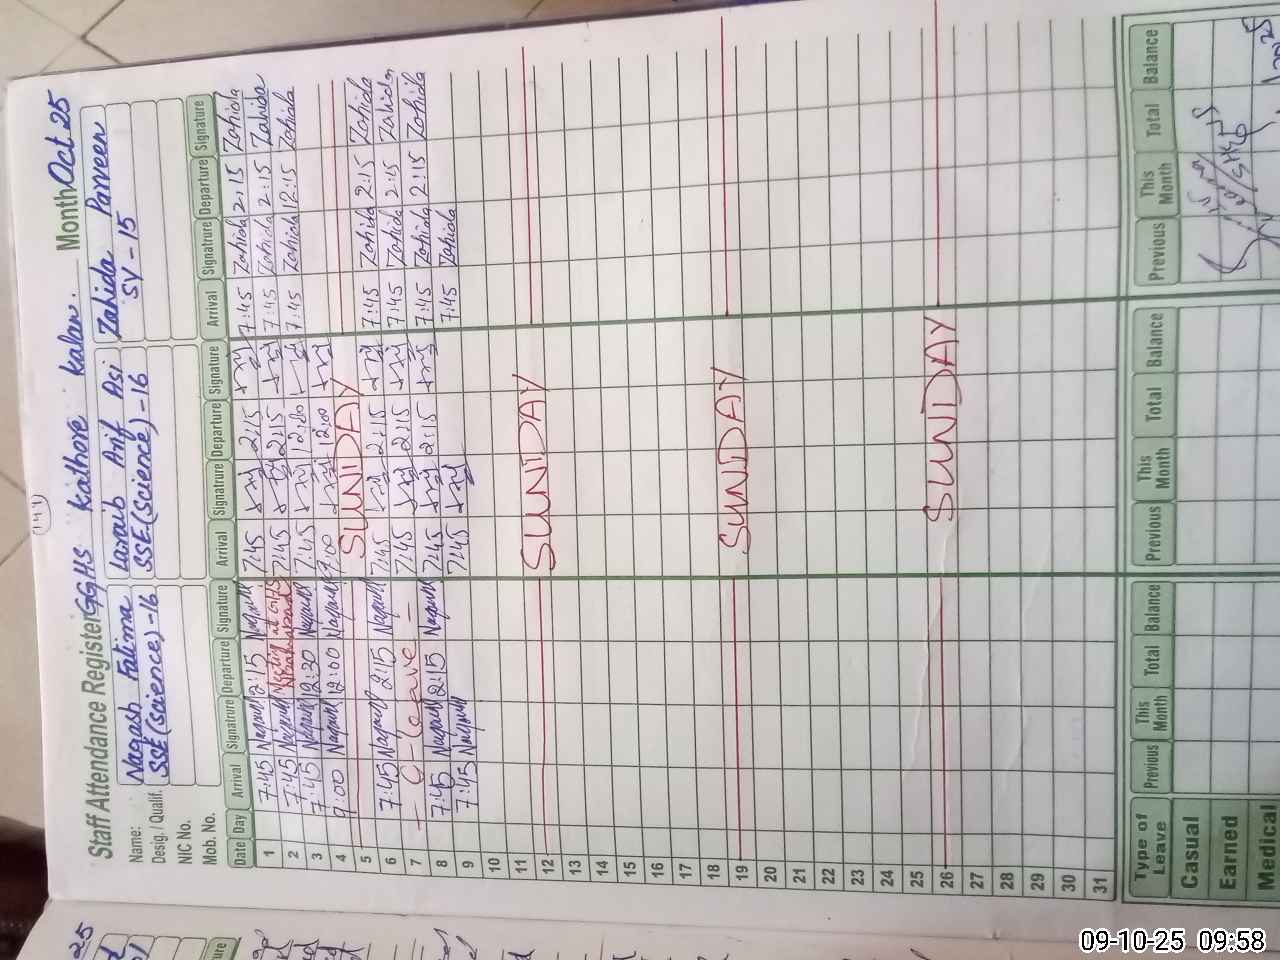 144
Staff Attendance Register GGHS Kathore Kalan. Month Oct.25
Name: Naqash Fatima Laraib Arif Asi Zahida Parveen
Desig. / Qualif. SSE (Science) -16 SSE.(Science) -16 SV - 15
NIC No.
Mob. No.
Date Day Arrival Signatrure Departure Signature Arrival Signatrure Departure Signature Arrival Signatrure Departure Signature
1 7:45 2:15 7:45 2:15 7:45 Zahida 2:15 Zahida
2 7:45 Meeting at 7:45 2:15 7:45 Zahida 2:15 Zahida
3 7:45 12:30 7:45 7:45 Zahida 12:15 Zahida
4 9:00 12:00 9:00 12:00
5 SUNDAY
6 7:45 2:15 7:45 2:15 7:45 Zahida 2:15 Zahida
7 - C - leave - 7:45 2:15 7:45 Zahida 2:15 Zahida
8 7:45 2:15 7:45 2:15 7:45 Zahida 2:15 Zahida
9 7:45 7:45 7:45 Zahida
10
11
12 SUNDAY
13
14
15
16
17
18
19 SUNDAY
20
21
22
23
24
25
26 SUNDAY
27
28
29
30
31
Type of Leave Previous This Month Total Balance Previous This Month Total Balance Previous This Month Total Balance
Casual
Earned
Medical
25
09-10-25 09:58